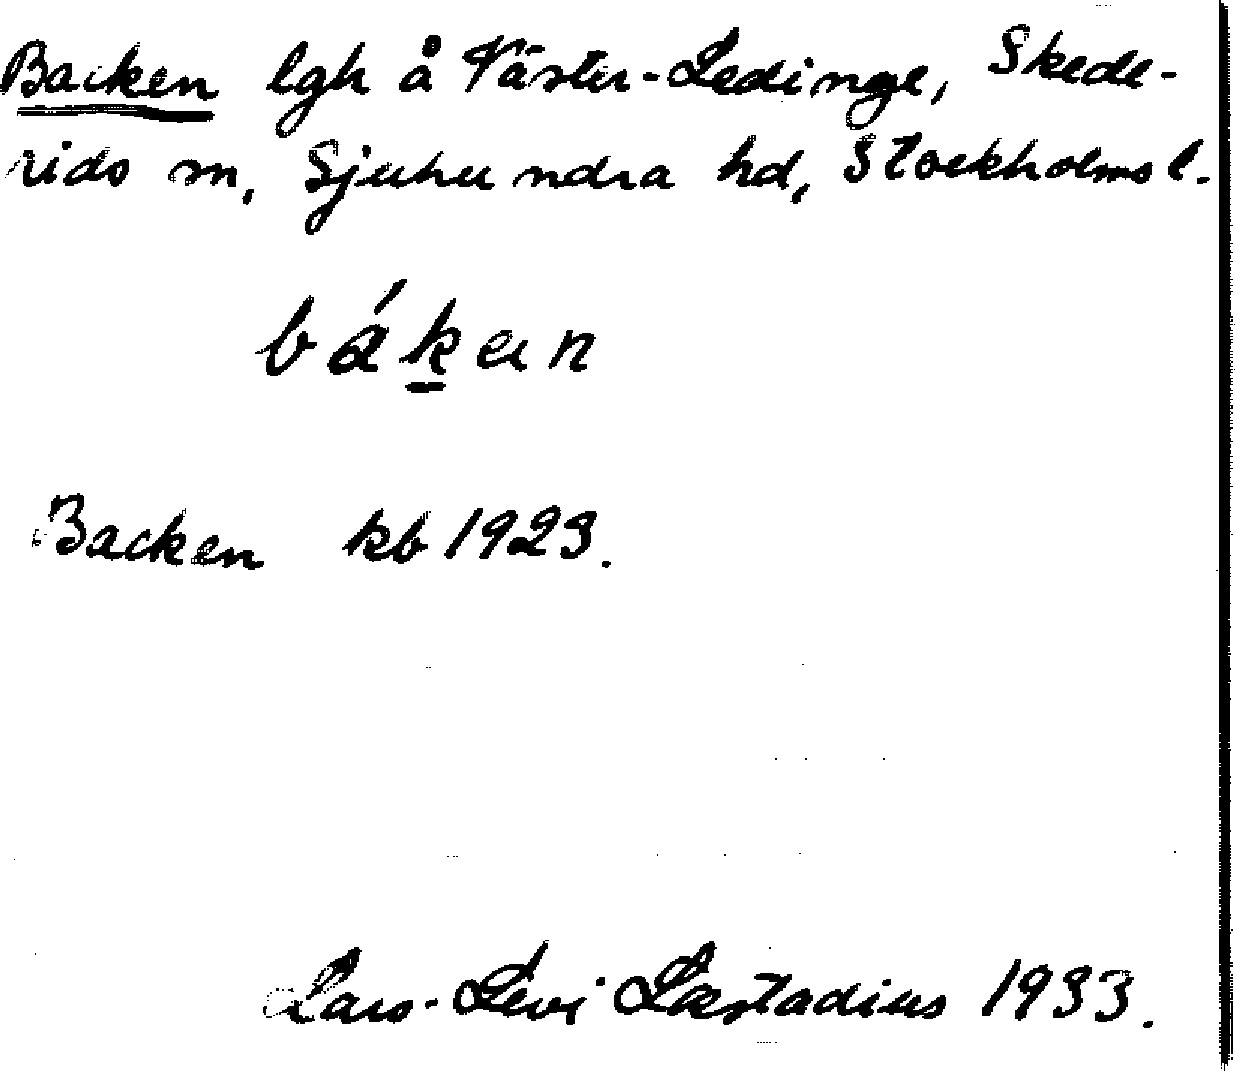 Backen lgh å Väster-Ledinge, Skede-
rids sn, Sjuhundra hd, Stockholms l.
bákan
Backen kb 1923.
Lars-Levi Læstadius 1933.